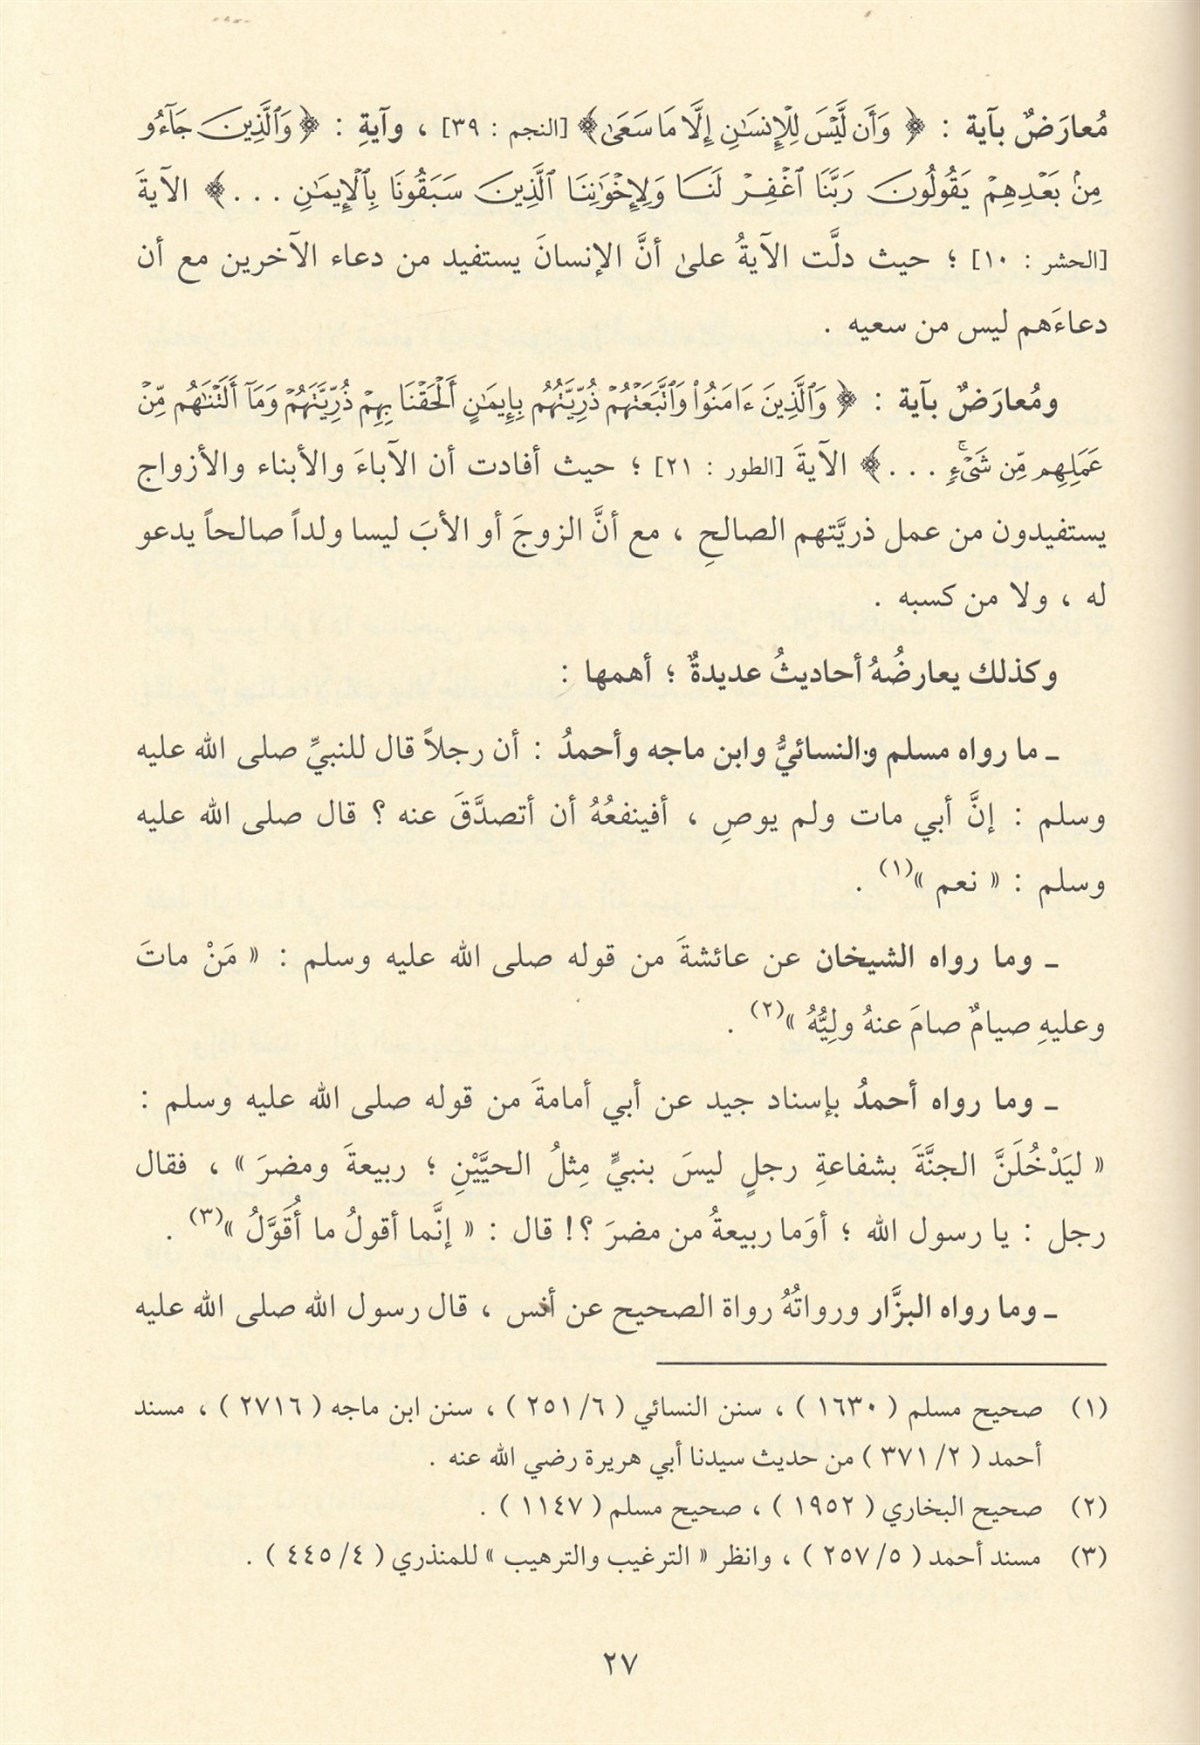 مُعارَضٌ بآية : ﴿ وَأَن لَّيْسَ لِلْإِنسَٰنِ إِلَّا مَا سَعَىٰ﴾ [النجم : ٣٩] ، وآيةِ : ﴿ وَٱلَّذِينَ جَآءُو
مِنۢ بَعْدِهِمْ يَقُولُونَ رَبَّنَا ٱغْفِرْ لَنَا وَلِإِخْوَٰنِنَا ٱلَّذِينَ سَبَقُونَا بِٱلْإِيمَٰنِ . . . ﴾ الآيةَ
[الحشر : ١٠] ؛ حيث دلَّت الآيةُ علىٰ أنَّ الإنسانَ يستفيد من دعاء الآخرين مع أن
دعاءَهم ليس من سعيه .
ومُعارَضٌ بآية : ﴿ وَٱلَّذِينَ ءَامَنُوا۟ وَٱتَّبَعَتْهُمْ ذُرِّيَّتُهُم بِإِيمَٰنٍ أَلْحَقْنَا بِهِمْ ذُرِّيَّتَهُمْ وَمَآ أَلَتْنَٰهُم مِّنْ
عَمَلِهِم مِّن شَىْءٍۚ . . . ﴾ الآيةَ [الطور : ٢١] ؛ حيث أفادت أن الآباءَ والأبناء والأزواج
يستفيدون من عمل ذريَّتهم الصالحِ ، مع أنَّ الزوجَ أو الأبَ ليسا ولداً صالحاً يدعو
له ، ولا من كسبه .
وكذلك يعارضُهُ أحاديثُ عديدةٌ ؛ أهمها :
ـ ما رواه مسلم والنسائيُّ وابن ماجه وأحمدُ : أن رجلاً قال للنبيِّ صلى الله عليه
وسلم : إنَّ أبي مات ولم يوصِ ، أفينفعُهُ أن أتصدَّقَ عنه ؟ قال صلى الله عليه
وسلم : « نعم »(١) .
ـ وما رواه الشيخان عن عائشةَ من قوله صلى الله عليه وسلم : « مَنْ ماتَ
وعليهِ صيامٌ صامَ عنهُ ولِيُّهُ »(٢) .
ـ وما رواه أحمدُ بإسناد جيد عن أبي أمامةَ من قوله صلى الله عليه وسلم :
« ليَدْخُلَنَّ الجنَّةَ بشفاعةِ رجلٍ ليسَ بنبيٍّ مِثلُ الحيَّيْنِ ؛ ربيعةَ ومضرَ » ، فقال
رجل : يا رسول الله ؛ أوَما ربيعةُ من مضرَ ؟! قال : « إنَّما أقولُ ما أُقَوَّلُ »(٣) .
ـ وما رواه البزَّار ورواتُهُ رواة الصحيح عن أنس ، قال رسول الله صلى الله عليه
(١) صحيح مسلم ( ١٦٣٠ ) ، سنن النسائي ( ٦/ ٢٥١ ) ، سنن ابن ماجه ( ٢٧١٦ ) ، مسند
أحمد ( ٢/ ٣٧١ ) من حديث سيدنا أبي هريرة رضي الله عنه .
(٢) صحيح البخاري ( ١٩٥٢ ) ، صحيح مسلم ( ١١٤٧ ) .
(٣) مسند أحمد ( ٥/ ٢٥٧ ) ، وانظر « الترغيب والترهيب » للمنذري ( ٤/ ٤٤٥ ) .
٢٧